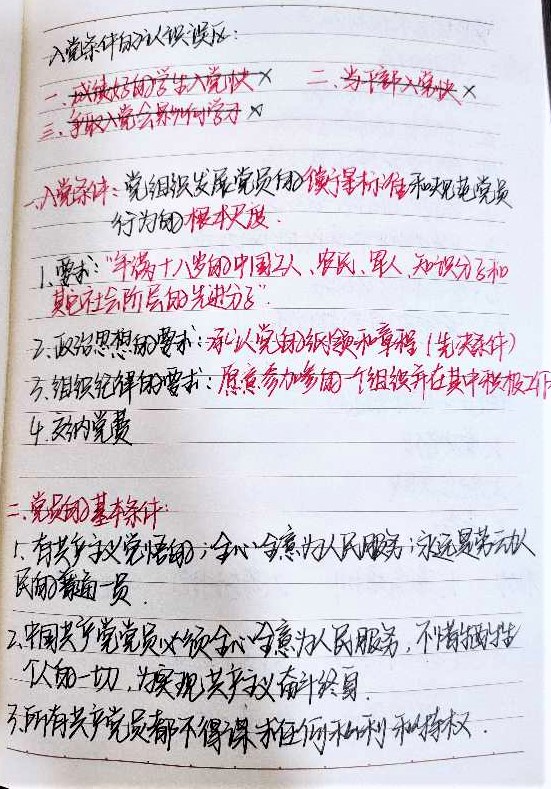 入党条件的认识误区:
一、成绩好的学生入党快 ×  二、当干部入党快 ×
三、争取入党会影响学习 ×
一、入党条件:党组织发展党员的衡量标准和规范党员
行为的根本尺度.
1.要求:"年满十八岁的中国工人、农民、军人、知识分子和
其它社会阶层的先进分子".
2.政治思想的要求:承认党的纲领和章程(先决条件)
3.组织纪律的要求:愿意参加参的一个组织并在其中积极工作
4.交纳党费
二.党员的基本条件:
1.有共产主义觉悟的;全心全意为人民服务;永远是劳动人
民的普通一员.
2.中国共产党党员必须全心全意为人民服务,不惜牺牲
个人的一切,为实现共产主义奋斗终身.
3.所有共产党员都不得谋求任何私利和特权.